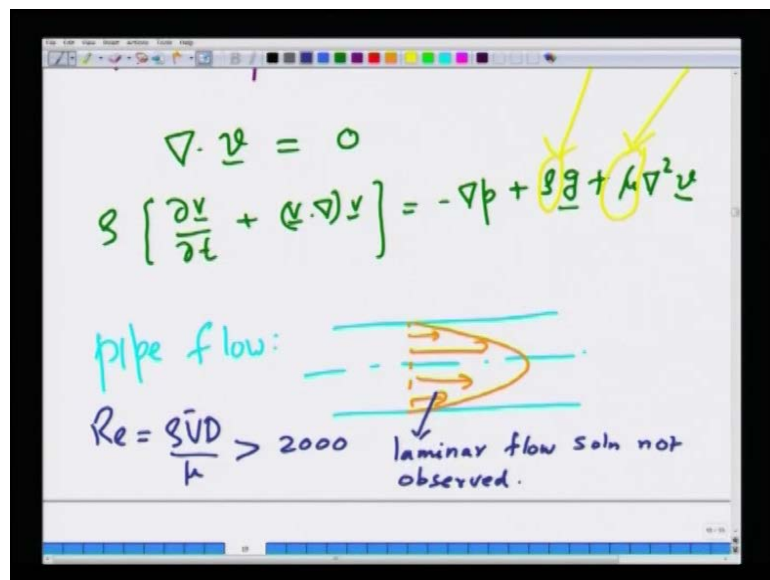 File Edit View Insert Actions Tools Help
∇. v = 0
ρ [ ∂v/∂t + (v.∇) v ] = - ∇p + ρg + μ∇²v
pipe flow:
Re = ρV̄D/μ > 2000 laminar flow soln not
observed.